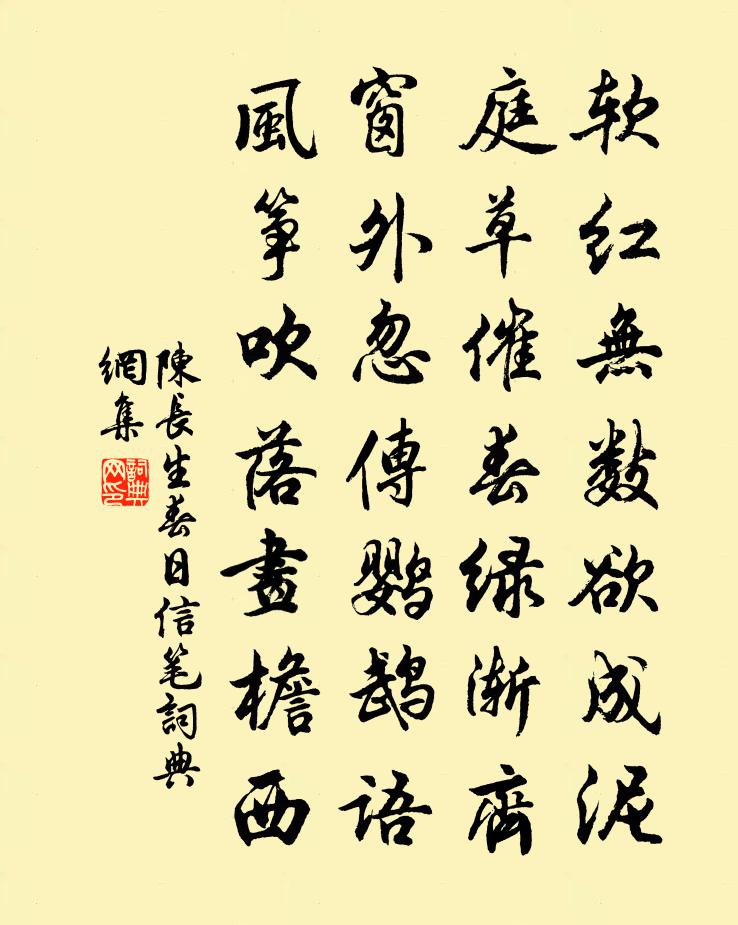 软红無数欲成泥
庭草催春绿渐齊
窗外忽傳鹦鹉語
風筝吹落畫檐西
陳長生春日信笔詞典
網集
詞典
网印